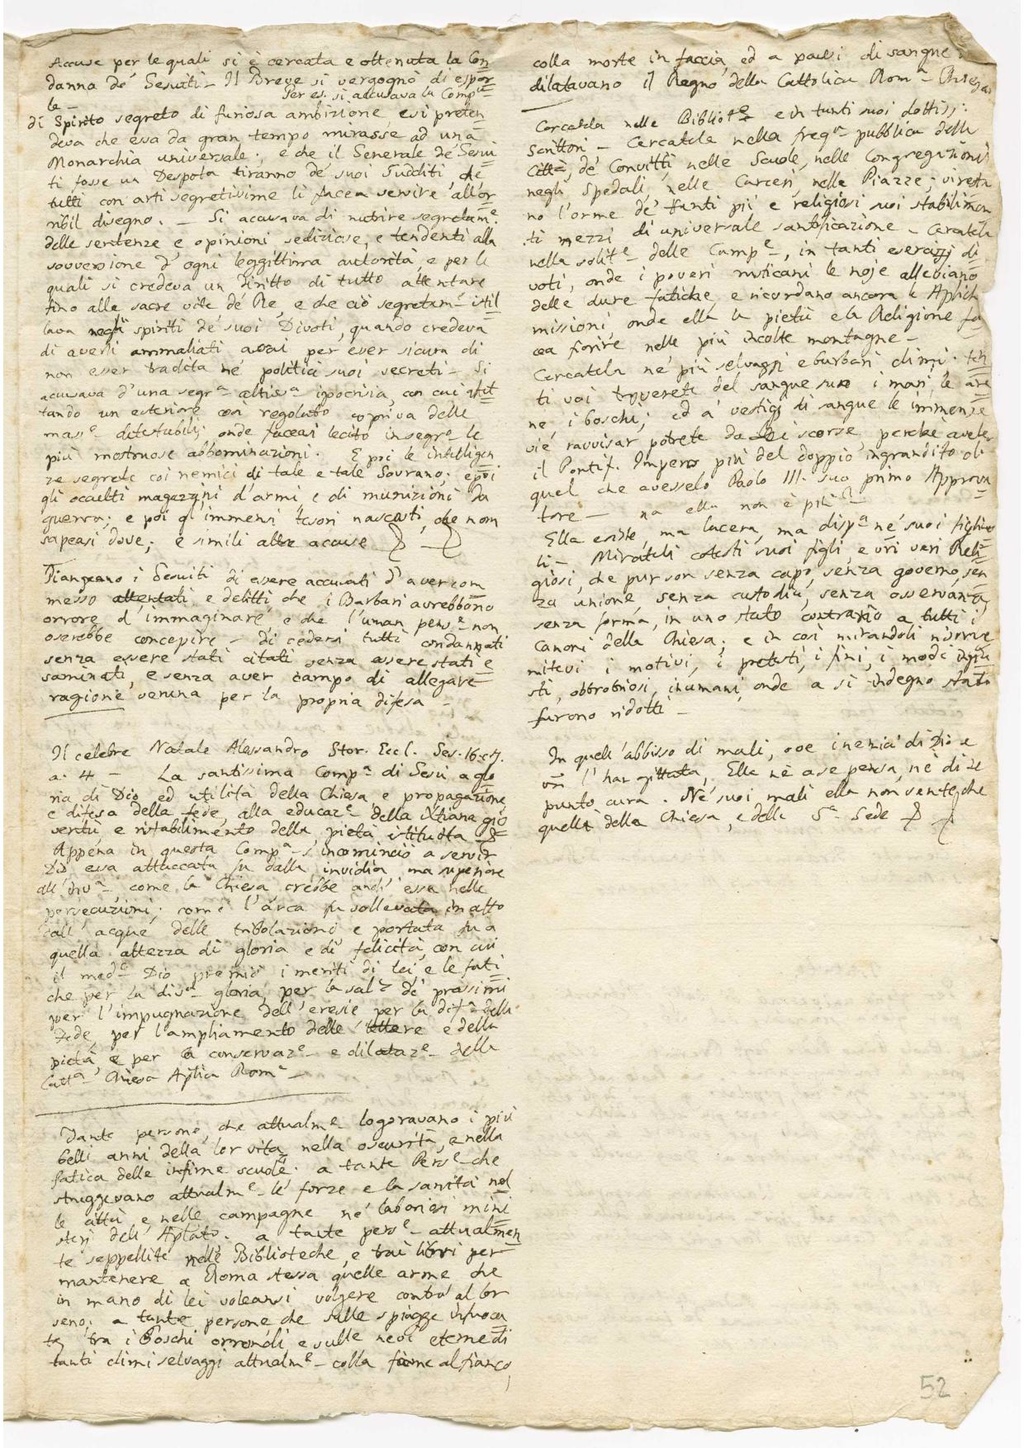 Accuse per le quali si è cercata e ottenuta la Con
danna de' Gesuiti - Il Breve si vergognò di espor
le - Per es. si accusava la Compa
di Spirito segreto di furiosa ambizione, e si preten
deva che essa da gran tempo mirasse ad una
Monarchia universale; e che il Generale de' Gesui
ti fosse un Despota tiranno de' suoi sudditi che
tutti con arti segretissime li facea servire all'or
ribil disegno. - Si accusava di nutrire segretame
delle sentenze e opinioni sediziose, e tendenti alla
sovversione d'ogni leggittima autorità, e per le
quali si credeva un diritto di tutto attentare
fino alle sacre vite de' Re, e che ciò segretame istil
lava negli spiriti de' suoi Divoti, quando credeva
di averli ammaliati assai per esser sicura di
non esser tradita ne' politici suoi secreti - Si
accusava d'una segra altissa ipocrisia, con cui
tando un esteriore regolato copriva delle
masse detestabili, onde faceasi lecito in segro le
più mostruose abbominazioni. E poi le intelligen
ze segrete coi nemici di tale e tale Sovrano; e poi
gli occulti magazzini d'armi e di munizioni da
guerra; e poi gl'immensi tesori nascosti, che non
sapeasi dove; e simili altre accuse
Piangeano i Gesuiti di essere accusati d'aver com
messo attentati e delitti che i Barbari avrebbono
orrore d'immaginare, e che l'uman pense non
oserebbe concepire - di vedersi tutti condannati
senza essere stati citati senza essere stati e
saminati, e senza aver campo di allegare
ragione veruna per la propria difesa -
Il celebre Natale Alessandro Stor. Eccl. Ses. 16. e 17.
a. 4 - La santissima Compa di Gesù a glo
ria di Dio ed utilità della Chiesa e propagazione
e difesa della fede, alla educaze della Xtiana gio
ventù e ristabilimento della pietà istituita
Appena in questa Compa s'incominciò a servir
Dio essa attaccata fu dalla invidia, ma superiore
all'inva come la Chiesa crebbe anch'essa nelle
persecuzioni; come l'arca fu sollevata in alto
dall'acque delle tribolazioni e portata fu a
quella altezza di gloria e di felicità, con cui
il mede Dio premiò i meriti di lei, e le fati
che per la diva gloria, per la sale de' prossimi
per l'impugnazione dell'eresie per la difa della
Fede, per l'ampliamento delle lettere e della
pietà e per la conservaze e dilataze della
Catta Chiesa Aplica Roma -
Tante persone, che attualme logoravano i più
belli anni della lor vita nella oscurità, e nella
fatica delle infime scuole: a tante Perse che
struggevano attualme le forze e la sanità nel
le città e nelle campagne ne' laboriosi mini
steri dell'Aplato. a tante perse attualmen
te seppellite nelle Biblioteche, e tra i libri per
mantenere a Roma stessa quelle arme che
in mano di lei voleansi volgere contra al lor
seno; a tante persone che sulle spiagge infuoca
te, tra i Boschi orrendi e sulle nevi eterne di
tanti climi selvaggi attualme colla fame al fianco,
colla morte in faccia, ed a passi di sangue
dilatavano il Regno della Cattolica Roma Chiesa
Cercatela nelle Bibliote e in tanti suoi dotti
Scrittori - Cercatela nella freqa pubblica delle
Città, de' Convitti, nelle Scuole, nelle Congregazioni
negli Spedali, nelle Carceri, nelle Piazze; vi resta
no l'orme de' tanti pii e religiosi suoi stabilimen
ti mezzi di universale santificazione - Cercatela
nella solite delle Campe, in tanti esercizj di
voti, onde i poveri rusticani le noje alleviano
delle dure fatiche, e ricordano ancora le Aplich
missioni, onde ella la pietà e la Religione fa
cea fiorire nelle più incolte montagne -
Cercatela ne' più selvaggi e barbari climi: tin
ti voi troverete del sangue suo i mari, le are
ne, i boschi; ed a' vestigj di sangue le immense
vie ravvisar potrete da Lei scorse, perchè avesse
il Pontif. Impero, più del doppio ingrandito di
quel che avesselo Paolo III. suo primo Approva
tore - ma ella non è più?
Ella esiste, ma lacera, ma dispa ne' suoi figliuo
li - Mirateli cotesti suoi figli, e vri veri Reli
giosi, che pur son senza capo, senza governo, sen
za unione, senza custodia, senza osservanza,
senza forma, in uno stato contrario a tutti i
Canoni della Chiesa; e in così mirandoli
i motivi, i pretesti, i fini, i modi ingiu
sti, obbrobriosi, inumani, onde a sì indegno stato
furono ridotti -
In quell'abbisso di mali, ove inemici di Dio e
l'han gittata, Ella nè a se pensa, nè di se
punto cura. Ne' suoi mali ella non sente che
quelli della Chiesa, e della Sa Sede
52